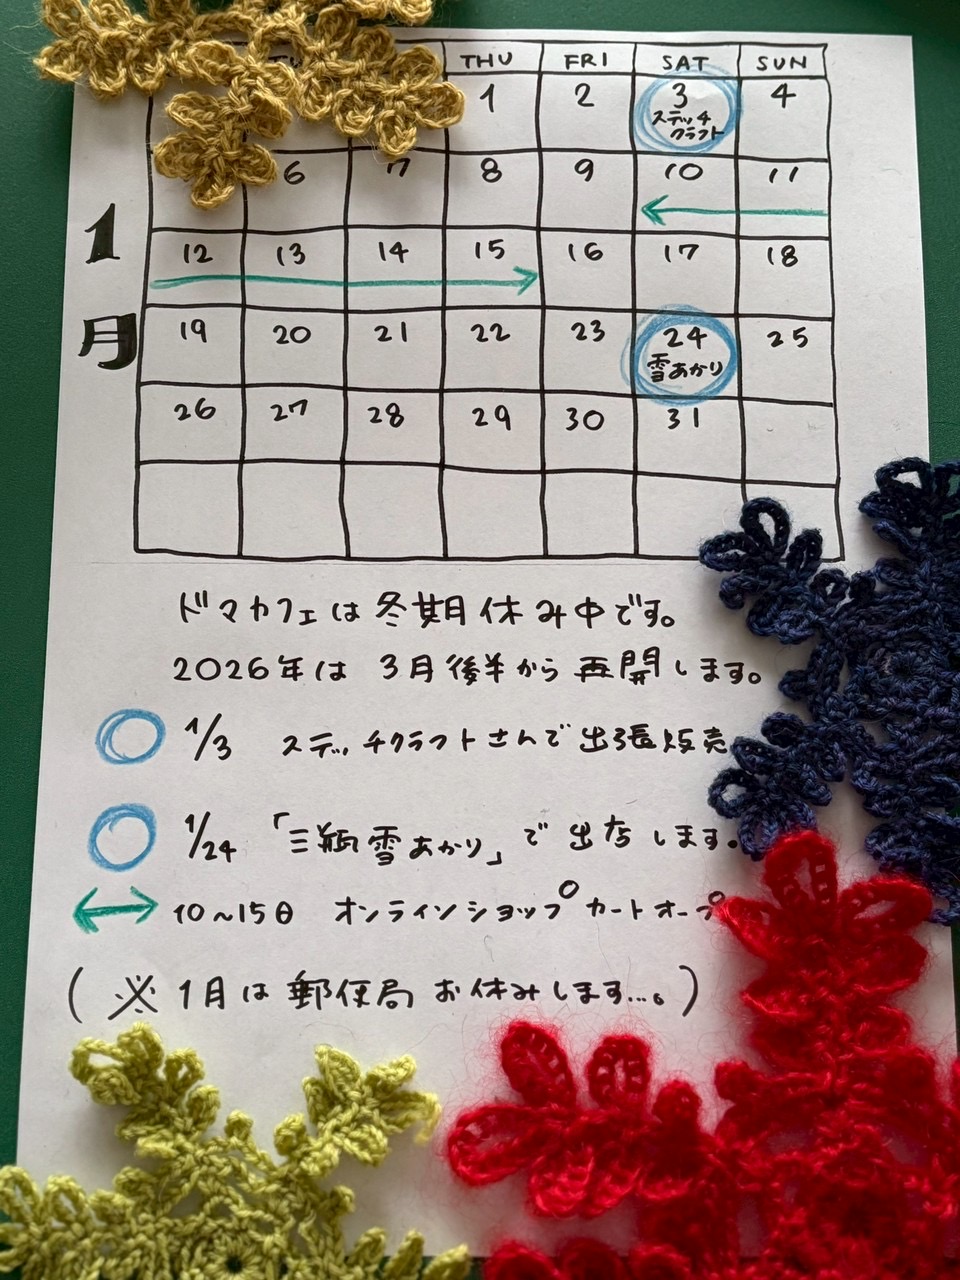 THU FRI SAT SUN
1 2 3 4
ステッチ
クラフト
6 7 8 9 10 11
1月
12 13 14 15 16 17 18
19 20 21 22 23 24 25
雪あかり
26 27 28 29 30 31
ドマカフェは冬期休み中です。
2026年は 3月後半から再開します。
1/3 ステッチクラフトさんで出張販売
1/24 「三瓶雪あかり」で出店します。
10~15日 オンラインショップカートオープ
(※1月は郵便局お休みします...。)